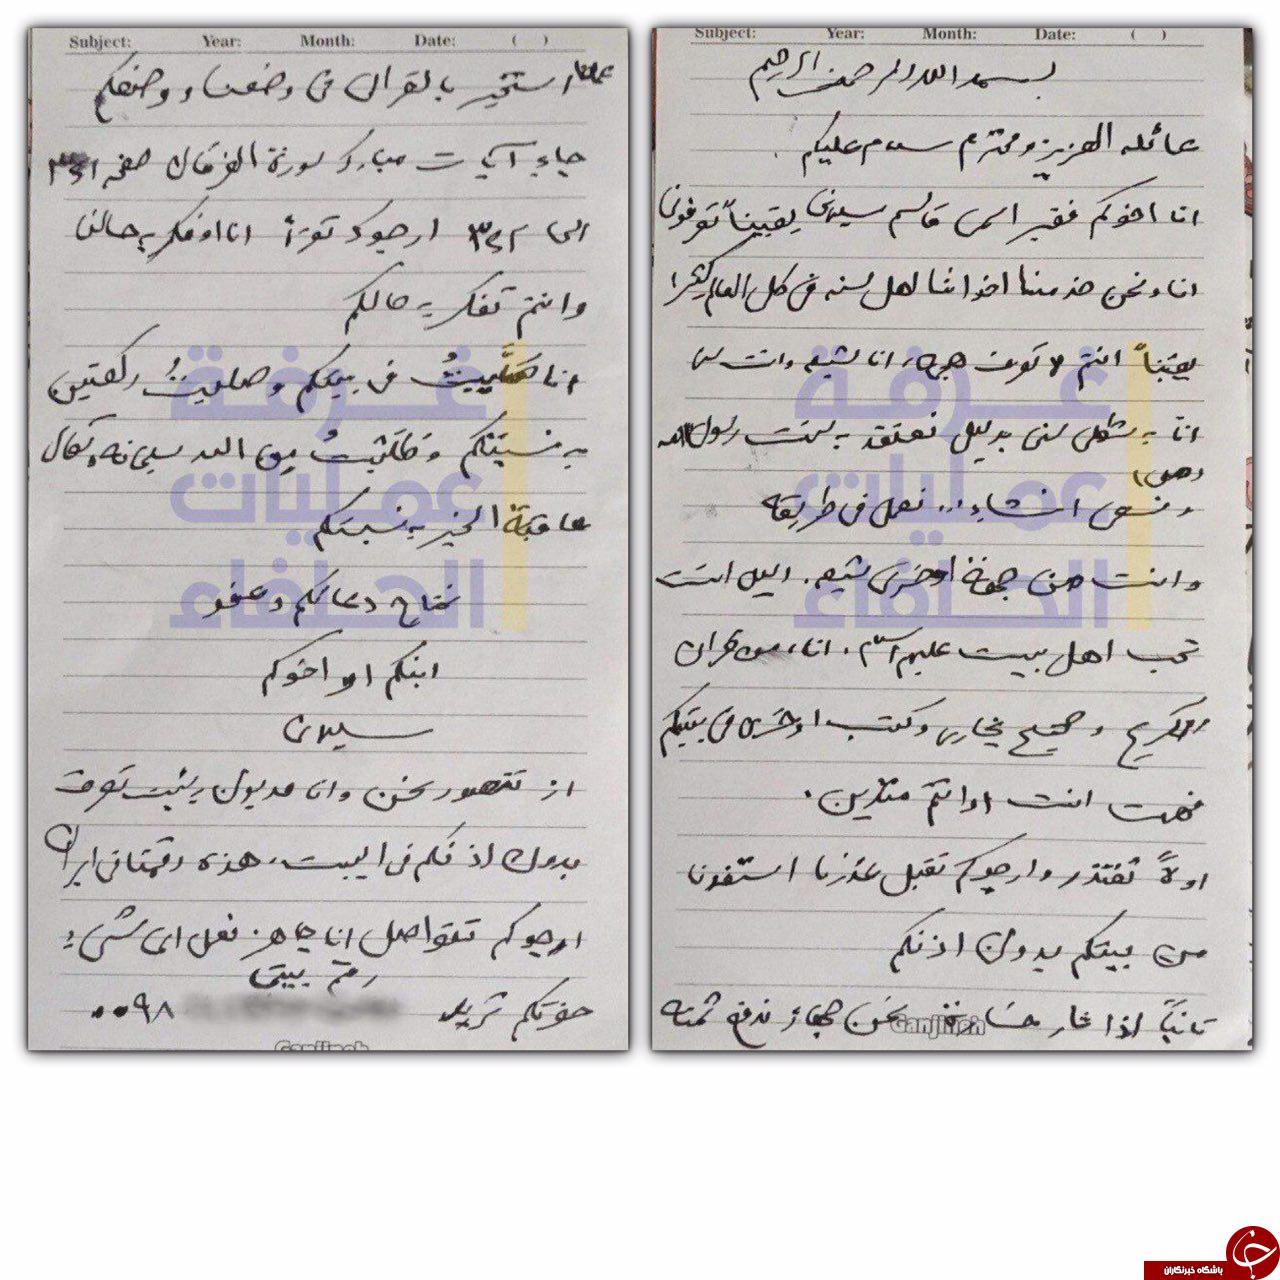 Subject: Year: Month: Date: ( )
بسم الله الرحمن الرحيم
عائله العزيز و محترم سلام عليكم
انا اخوكم فقير اسمي قاسم سليماني يقيناً تعرفوني
انا و نحن خدمنا اخواننا اهل سنه في كل العالم كثيرا
يقيناً انتم لا انا شيعه وانت سني
انا به شكلي سني بدليل نعتقد به سنت رسول الله
(ص)
و نسعى انشاء ا... نعمل في طريقه
وانت من جهة اخرى شيعه. دليل انت
تحب اهل بيت عليهم السلام. انا من قران
الكريم و صحيح بخاري و كتب اخرى في بيتكم
فهمت انت او انتم متدين.
اولاً نعتذر و ارجوكم تقبل عذرنا استفدنا
من بيتكم بدون اذنكم
ثانياً اذا صار خسارة نحن ندفع ثمنه
غرفة
عمليات
الحلفاء
Ganjineh
Subject: Year: Month: Date: ( )
استخير بالقران في وضعنا و وضعكم
جاء آيات مبارك سورة الفرقان صفحه ٣٦١
الى ارجوك تقرأ انا افكر به حالنا
وانتم تفكر به حالكم
انا صَلَّيتُ في بيتكم و صليتُ ركعتين
به نسبتكم و طَلَبتُ من الله سبحانه و تعال
عاقبة الخير به نسبتكم
نحتاج دعائكم و عفو
ابنكم او اخوكم
سليماني
از نحن وانا مديون
بدون اذنكم في البيت. هذه رقمنا في ايران
ارجوكم تتواصل انا جاهز نعمل اي شيء
رقم بيتي
حضرتكم تريد ٠٠٩٨
غرفة
عمليات
الحلفاء
Ganjineh
باشگاه خبرنگاران